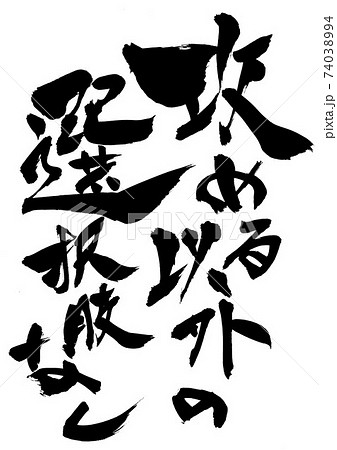 攻める以外の
選択肢なし
PIXTA
pixta.jp - 74038994